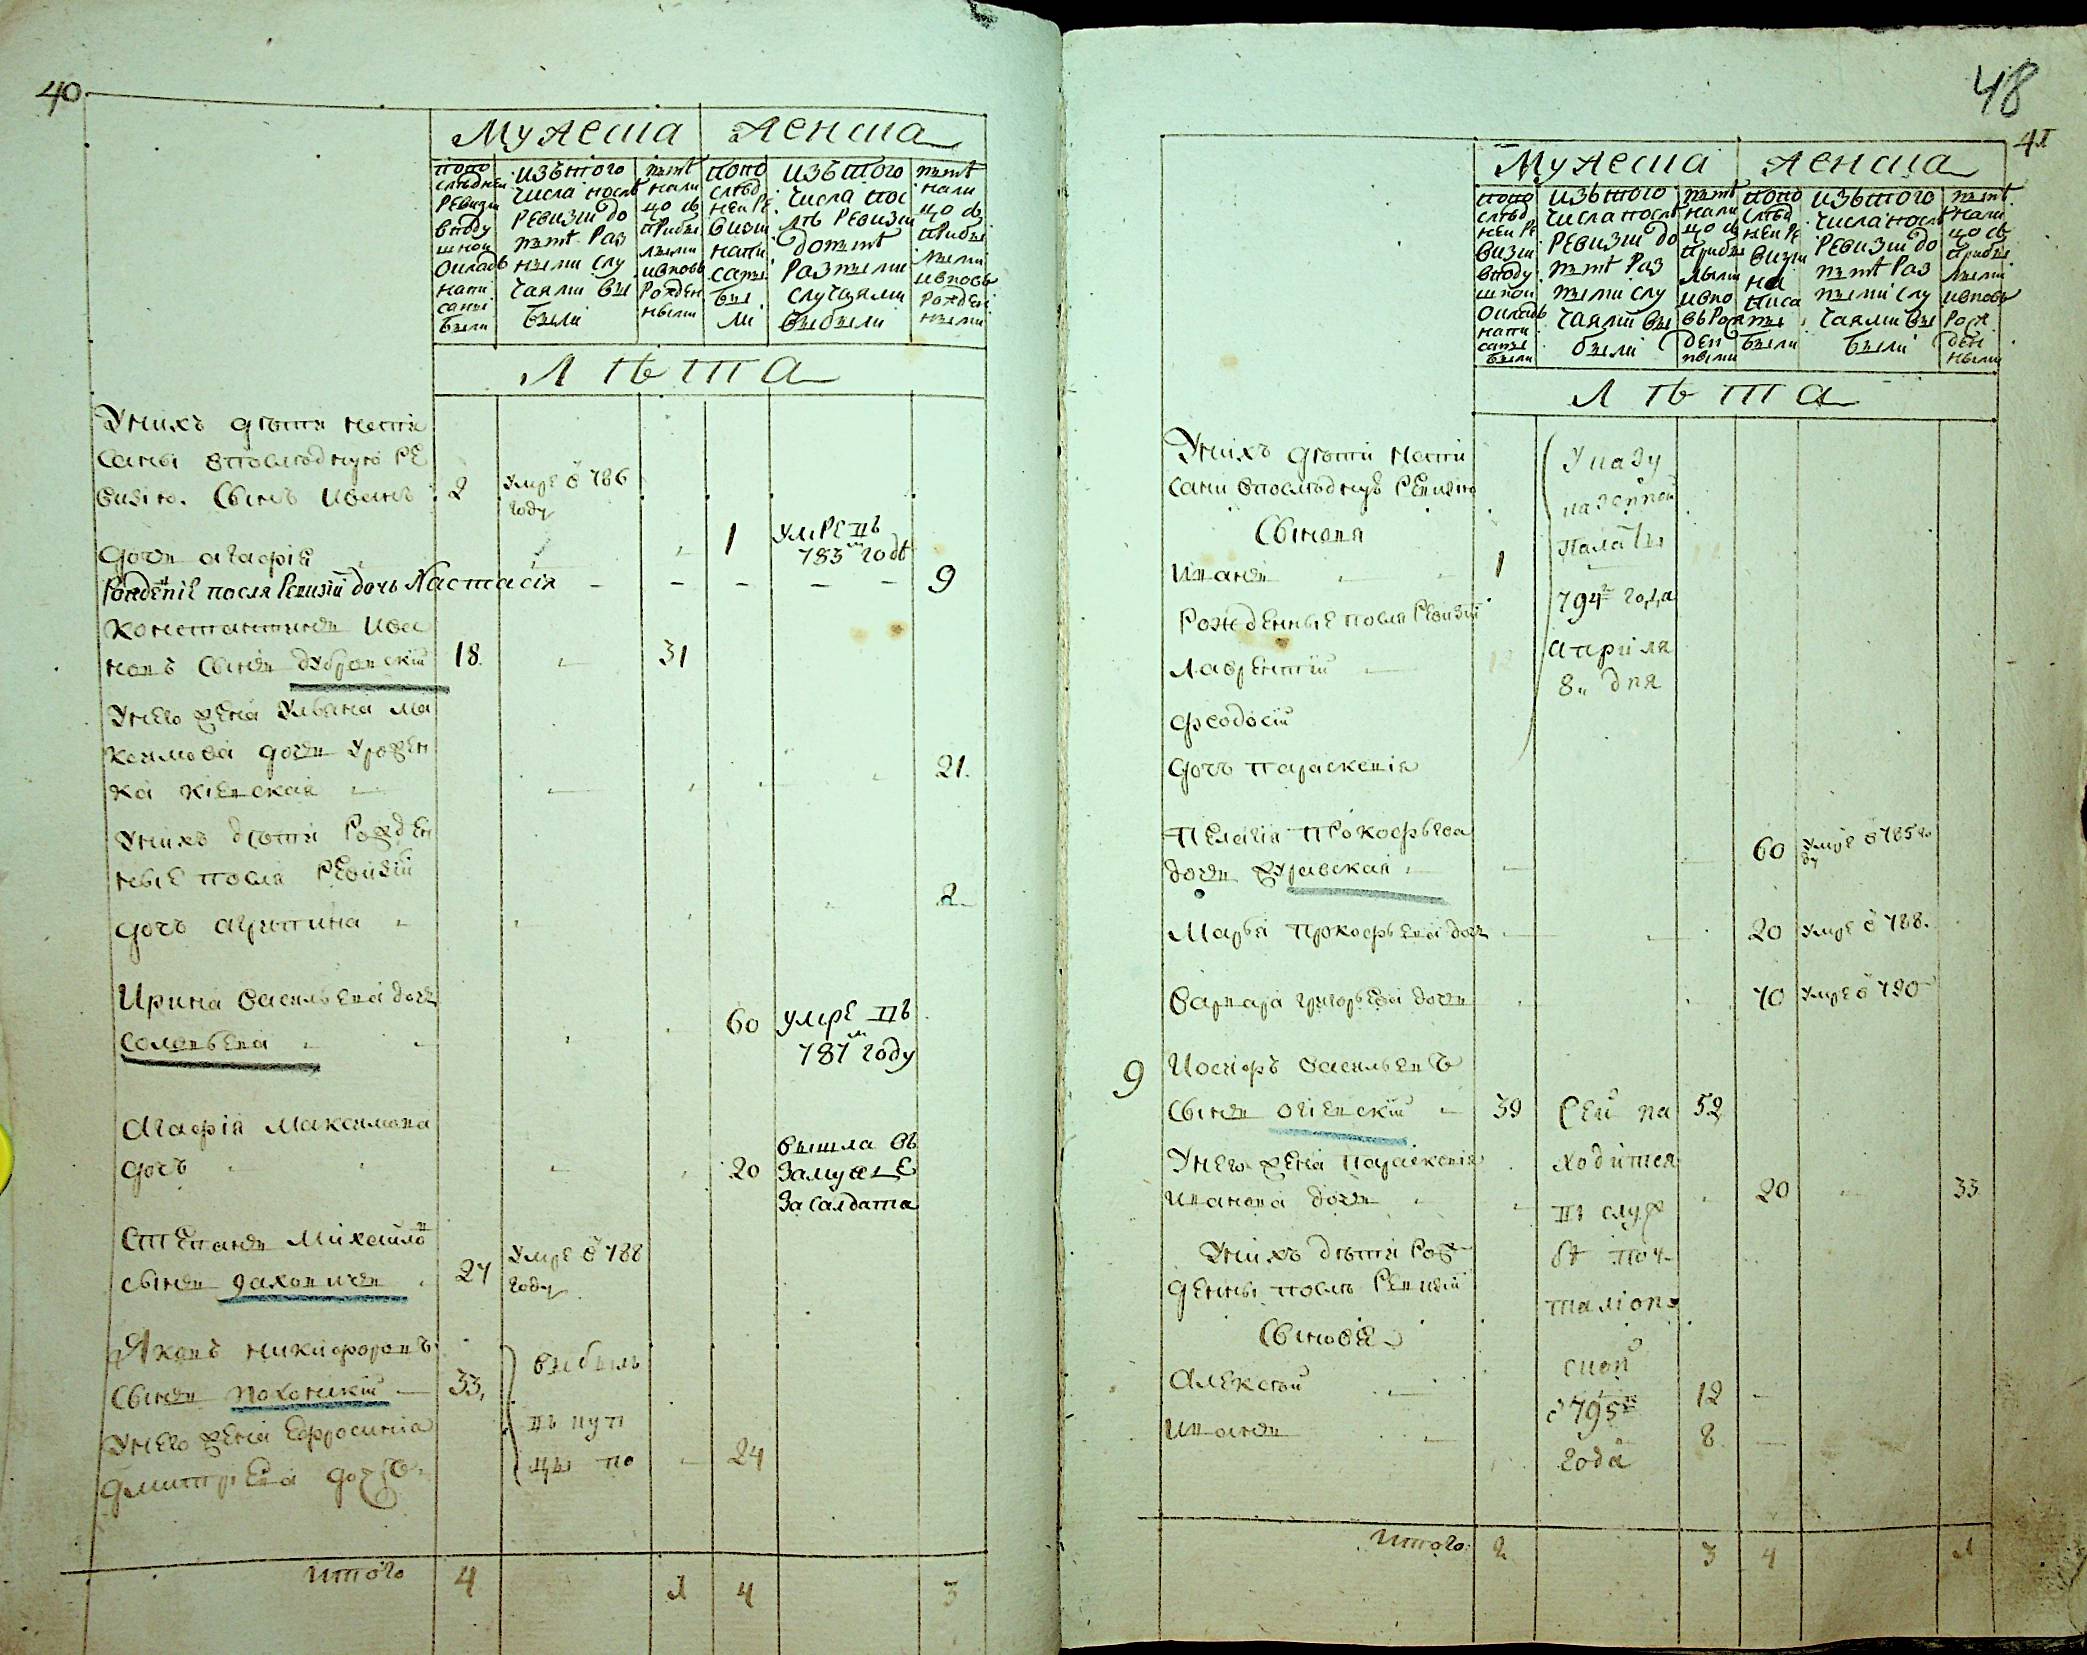 40
Мужеска
Женска
попо
следней
ревизи
в поду
шной
окладъ
напи
саны
были
изъ того
числа после
ревизи до
ныне раз
ными слу
чаями вы
были
ныне
нали
цо съ
прибы
лыми
и вновь
рожден
ными
попо
след
ней ре
визи
напи
саны
бы
ли
изъ того
числа пос
лѣ ревизи
до ныне
разными
случаями
выбыли
ныне
нали
цо съ
прибы
лыми
и вновь
рожден
ными
Лѣта
У нихъ дѣти напи
саны в последнюю ре
визию. Сынъ Иванъ 2 умре в 786
году
Дочь Агафия 1 умре въ
783м годе
Рожденне после ревизии дочь Настасия 9
Константинъ Ива
новъ сынъ Дубровский 18. 31
У него жена Ульяна Ма
ксимова дочь урожен
ка киевская 21.
У нихъ дети рожден
ные после ревизии
Дочь Агрипина 2
Ирина Васильева дочь
Соловьева 60 умре въ
787м году
Агафия Максимова
дочь 20 вышла въ
замуже
за салдата
Степанъ Михайловъ
сынъ Даховичъ 27 умре в 788
году
Яковъ Никифоровъ
сынъ Похонский 33. выбылъ
въ куп
цы по
У него жена Ефросиния
Дмитриева дочь 24
Итого 4 1 4 3
48
41
Мужеска
Женска
попо
след
ней ре
визи
в поду
шной
окладъ
напи
саны
были
изъ того
числа после
ревизи до
ныне раз
ными слу
чаями вы
были
ныне
нали
цо съ
прибы
лыми
и вно
вь рож
ден
ными
попо
след
ней ре
визи
на
писа
ны
были
изъ того
числа после
ревизи до
ныне раз
ными слу
чаями вы
были
ныне
нали
цо съ
прибы
лыми
и вновь
рож
ден
ными
Лѣта
У нихъ дѣти напи
сани в последнуъ ревизию
Сыновя
Иванъ 1
Рожденные после ревизии
Лаврентий
Феодосий
Дочъ Параскевия
Указу
казенной
палаты
794г года
априля
8 дня
Пелагия Прокофьева
дочь Журавская 60 умре в 785 го
ду
Марья Прокофьева дочь 20 умре в 788.
Варвара Григорьева дочь 70 умре в 790
9 Иосифъ Васильевъ
сынъ Огиевский 39 Сей на 52
ходится
въ служ
бе поч
талион
ской
с 795го
года
У него жена Параскевия
Иванова дочь 20 33
У нихъ дети рож
денны после ревизии
Сыновя
Алексей 12
Иванъ 8
Итого: 2 3 4 1